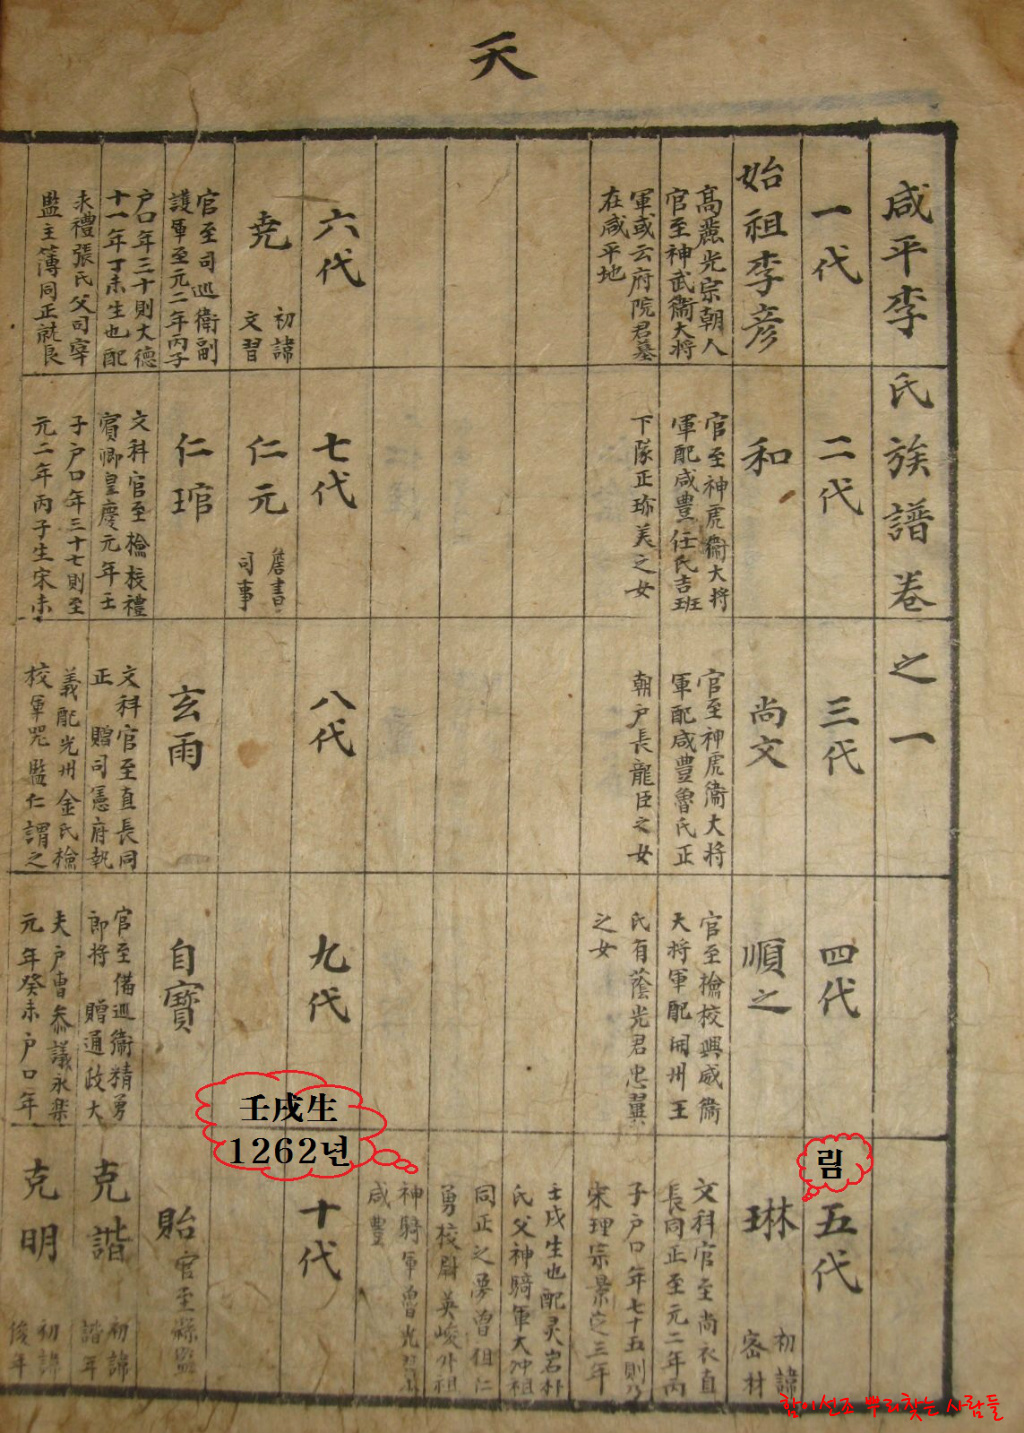 天
咸平李氏族譜卷之一
一代
始祖李彦
高麗光宗朝人
官至神武衛大將
軍或云府院君墓
在咸平地
六代
尭
初諱
文習
官至司巡衛副
護軍至元二年丙子
戶口年三十則大德
十一年丁未生也配
永禮張氏父司宰
監主簿同正就良
二代
和
官至神虎衛大將
軍配咸豊任氏吉班
下隊正珎美之女
七代
仁元
詹書
司事
仁琯
文科官至檢校禮
賓卿皇慶元年壬
子戶口年三十七則至
元二年丙子生宋未
三代
尚文
官至神虎衛大將
軍配咸豊魯氏正
朝戶長龍臣之女
八代
玄雨
文科官至直長同
正 贈司憲府執
義配光州金氏檢
校軍器監仁謂之
四代
順之
官至檢校興威衛
大將軍配開州王
氏有蔭光君忠翼
之女
九代
自寶
官至備巡衛精勇
郎將 贈通政大
夫戶曹參議永樂
元年癸未戶口年
五代
琳
初諱
密材
文科官至尚衣直
長同正至元二年丙
子戶口年七十五則乃
宋理宗景定三年
壬戌生也配灵岩朴
氏父神騎軍大冲祖
同正之勇曾祖仁
勇校尉英峻外祖
神騎軍曾光
咸豊
十代
貽
官至縣監
克諧
初諱
諧年
克明
初諱
俊年
壬戌生
1262년
림
함이선조 뿌리찾는 사람들